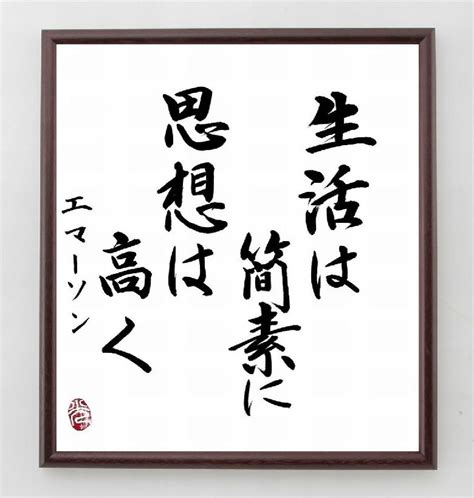 生活は
簡素に
思想は
高く
エマーソン